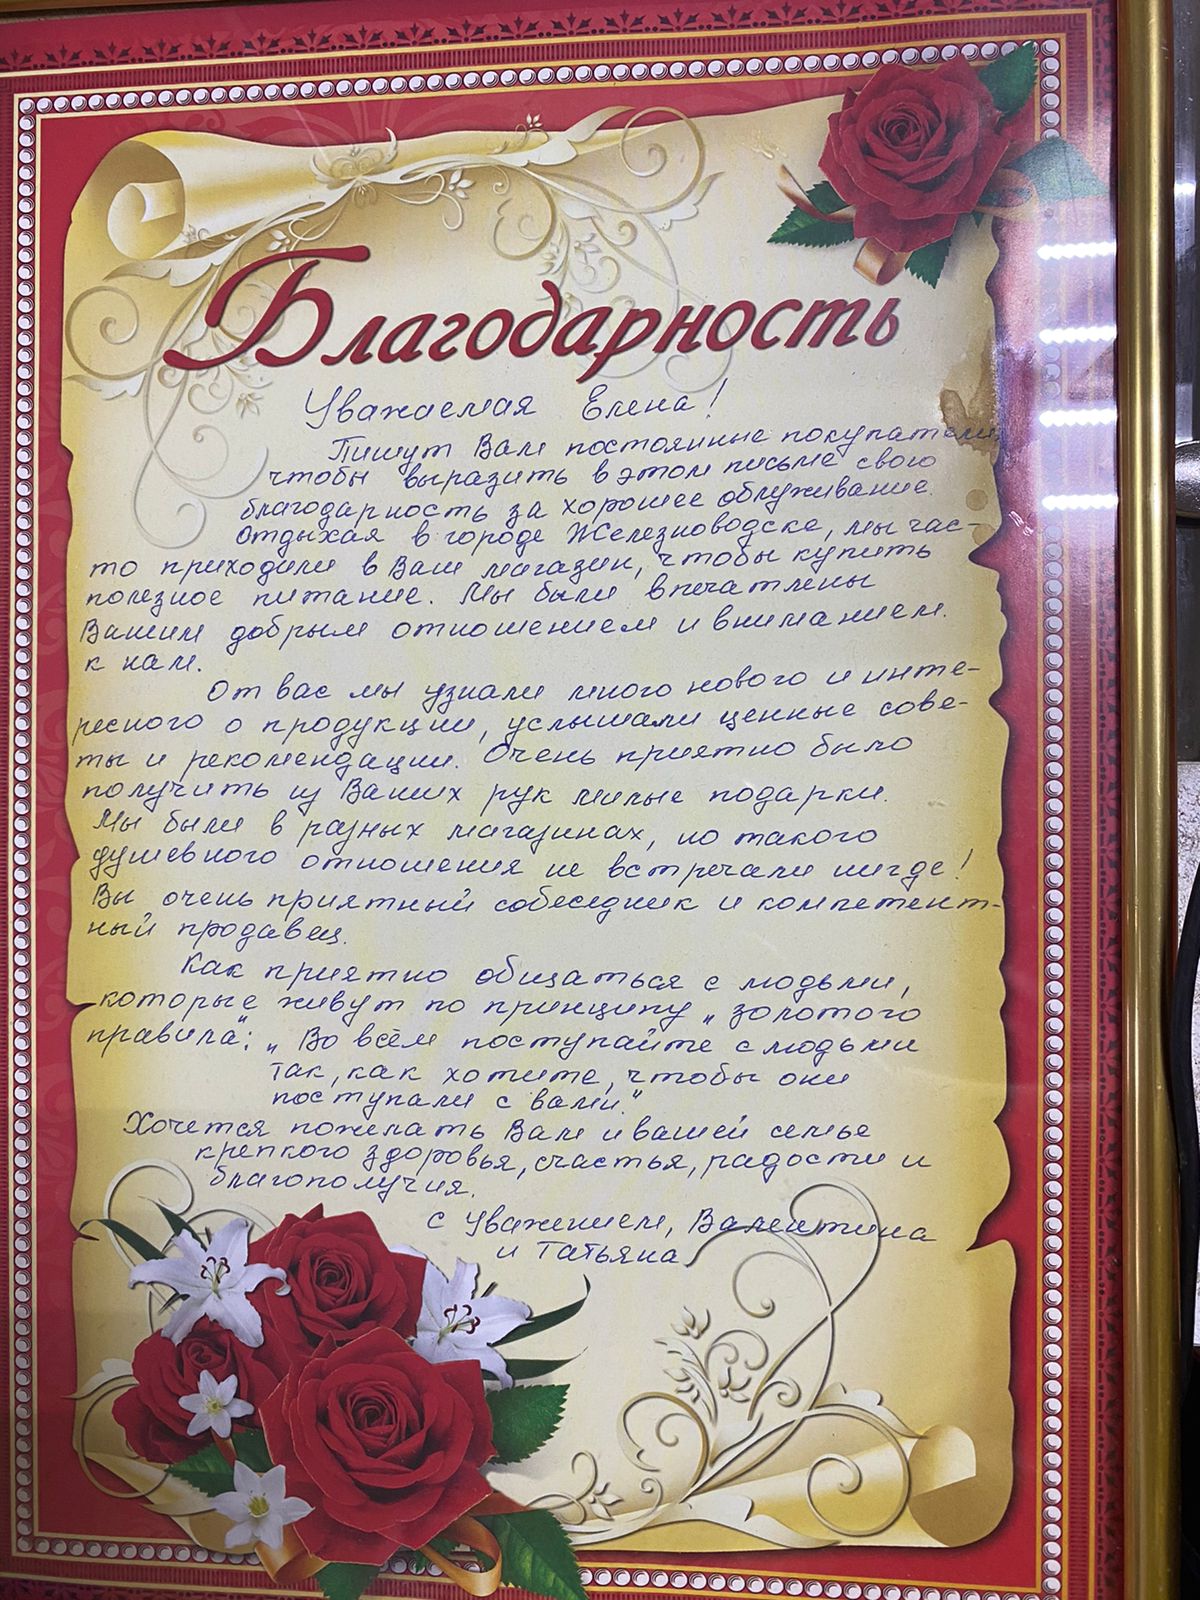 Благодарность
Уважаемая Елена!
Пишут Вам постоянные покупатели,
чтобы выразить в этом письме свою
благодарность за хорошее облуживание.
Отдыхая в городе Железноводске, мы час-
то приходили в Ваш магазин, чтобы купить
полезное питание. Мы были впечатлены
Вашим добрым отношением и вниманием
к нам.
От вас мы узнали много нового и инте-
ресного о продукции, услышали ценные сове-
ты и рекомендации. Очень приятно было
получить из Ваших рук милые подарки.
Мы были в разных магазинах, но такого
душевного отношения не встречали нигде!
Вы очень приятный собеседник и компетент-
ный продавец.
Как приятно общаться с людьми,
которые живут по принципу „золотого
правила“: „Во всём поступайте с людьми
так, как хотите, чтобы они
поступали с вами.“
Хочется пожелать Вам и вашей семье
крепкого здоровья, счастья, радости и
благополучия.
С уважением, Валентина
и Татьяна